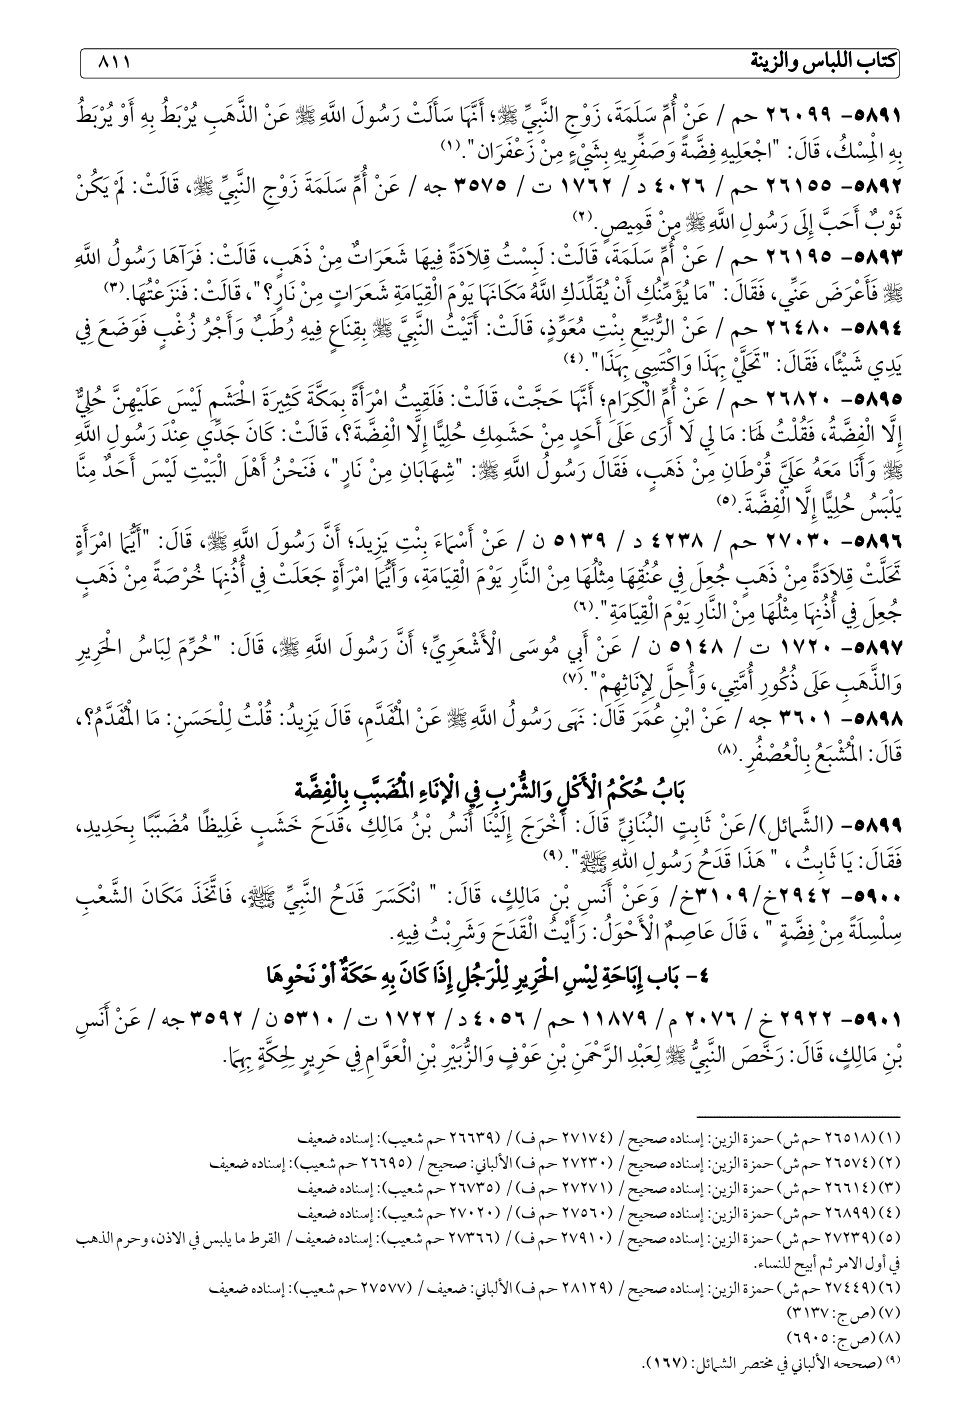 كتاب اللباس والزينة ٨١١
٥٨٩١- ٢٦٠٩٩ حم / عَنْ أُمِّ سَلَمَةَ، زَوْجِ النَّبِيِّ ﷺ؛ أَنَّهَا سَأَلَتْ رَسُولَ اللَّهِ ﷺ عَنْ الذَّهَبِ يُرْبَطُ بِهِ أَوْ يُرْبَطُ
بِهِ الْمِسْكُ، قَالَ: "اجْعَلِيهِ فِضَّةً وَصَفِّرِيهِ بِشَيْءٍ مِنْ زَعْفَرَان".(١)
٥٨٩٢- ٢٦١٥٥ حم / ٤٠٢٦ د / ١٧٦٢ ت / ٣٥٧٥ جه / عَنْ أُمِّ سَلَمَةَ زَوْجِ النَّبِيِّ ﷺ، قَالَتْ: لَمْ يَكُنْ
ثَوْبٌ أَحَبَّ إِلَى رَسُولِ اللَّهِ ﷺ مِنْ قَمِيصٍ.(٢)
٥٨٩٣- ٢٦١٩٥ حم / عَنْ أُمِّ سَلَمَةَ، قَالَتْ: لَبِسْتُ قِلَادَةً فِيهَا شَعَرَاتٌ مِنْ ذَهَبٍ، قَالَتْ: فَرَآهَا رَسُولُ اللَّهِ
ﷺ فَأَعْرَضَ عَنِّي، فَقَالَ: "مَا يُؤَمِّنُكِ أَنْ يُقَلِّدَكِ اللَّهُ مَكَانَهَا يَوْمَ الْقِيَامَةِ شَعَرَاتٍ مِنْ نَارٍ؟"، قَالَتْ: فَنَزَعْتُهَا.(٣)
٥٨٩٤- ٢٦٤٨٠ حم / عَنْ الرُّبَيِّعِ بِنْتِ مُعَوِّذٍ، قَالَتْ: أَتَيْتُ النَّبِيَّ ﷺ بِقِنَاعٍ فِيهِ رُطَبٌ وَأَجْرُ زُغْبٍ فَوَضَعَ فِي
يَدِي شَيْئًا، فَقَالَ: "تَحَلَّيْ بِهَذَا وَاكْتَسِي بِهَذَا".(٤)
٥٨٩٥- ٢٦٨٢٠ حم / عَنْ أُمِّ الْكِرَامِ؛ أَنَّهَا حَجَّتْ، قَالَتْ: فَلَقِيتُ امْرَأَةً بِمَكَّةَ كَثِيرَةَ الْحَشَمِ لَيْسَ عَلَيْهِنَّ حُلِيٌّ
إِلَّا الْفِضَّةُ، فَقُلْتُ لَهَا: مَا لِي لَا أَرَى عَلَى أَحَدٍ مِنْ حَشَمِكِ حُلِيًّا إِلَّا الْفِضَّةَ؟، قَالَتْ: كَانَ جَدِّي عِنْدَ رَسُولِ اللَّهِ
ﷺ وَأَنَا مَعَهُ عَلَيَّ قُرْطَانِ مِنْ ذَهَبٍ، فَقَالَ رَسُولُ اللَّهِ ﷺ: "شِهَابَانِ مِنْ نَارٍ"، فَنَحْنُ أَهْلَ الْبَيْتِ لَيْسَ أَحَدٌ مِنَّا
يَلْبَسُ حُلِيًّا إِلَّا الْفِضَّةَ.(٥)
٥٨٩٦- ٢٧٠٣٠ حم / ٤٢٣٨ د / ٥١٣٩ ن / عَنْ أَسْمَاءَ بِنْتِ يَزِيدَ؛ أَنَّ رَسُولَ اللَّهِ ﷺ، قَالَ: "أَيُّمَا امْرَأَةٍ
تَحَلَّتْ قِلَادَةً مِنْ ذَهَبٍ جُعِلَ فِي عُنُقِهَا مِثْلُهَا مِنْ النَّارِ يَوْمَ الْقِيَامَةِ، وَأَيُّمَا امْرَأَةٍ جَعَلَتْ فِي أُذُنِهَا خُرْصَةً مِنْ ذَهَبٍ
جُعِلَ فِي أُذُنِهَا مِثْلُهَا مِنْ النَّارِ يَوْمَ الْقِيَامَةِ".(٦)
٥٨٩٧- ١٧٢٠ ت / ٥١٤٨ ن / عَنْ أَبِي مُوسَى الْأَشْعَرِيِّ؛ أَنَّ رَسُولَ اللَّهِ ﷺ، قَالَ: "حُرِّمَ لِبَاسُ الْحَرِيرِ
وَالذَّهَبِ عَلَى ذُكُورِ أُمَّتِي، وَأُحِلَّ لِإِنَاثِهِمْ".(٧)
٥٨٩٨- ٣٦٠١ جه / عَنْ ابْنِ عُمَرَ قَالَ: نَهَى رَسُولُ اللَّهِ ﷺ عَنْ الْمُفَدَّمِ، قَالَ يَزِيدُ: قُلْتُ لِلْحَسَنِ: مَا الْمُفَدَّمُ؟،
قَالَ: الْمُشْبَعُ بِالْعُصْفُرِ.(٨)
بَابُ حُكْمُ الْأَكْلِ وَالشُّرْبِ فِي الْإِنَاءِ الْمُضَبَّبِ بِالْفِضَّة
٥٨٩٩- (الشَّمائل)/عَنْ ثَابِتِ البُنَانِيِّ قَالَ: أَخْرَجَ إِلَيْنَا أَنَسُ بْنُ مَالِكِ ،قَدَحَ خَشَبٍ غَلِيظًا مُضَبَّبًا بِحَدِيدِ،
فَقَالَ: يَا ثَابِتُ ، " هَذَا قَدَحُ رَسُولِ اللهِ ﷺ".(٩)
٥٩٠٠- ٢٩٤٢خ/٣١٠٩خ/ وَعَنْ أَنَسِ بْنِ مَالِكٍ، قَالَ: " انْكَسَرَ قَدَحُ النَّبِيِّ ﷺ، فَاتَّخَذَ مَكَانَ الشَّعْبِ
سِلْسِلَةً مِنْ فِضَّةٍ " ، قَالَ عَاصِمٌ الْأَحْوَلُ: رَأَيْتُ الْقَدَحَ وَشَرِبْتُ فِيهِ.
٤- بَاب إِبَاحَةِ لِبْسِ الْحَرِيرِ لِلرَّجُلِ إِذَا كَانَ بِهِ حَكَةٌ أَوْ نَحْوِهَا
٥٩٠١- ٢٩٢٢ خ / ٢٠٧٦ م/ ١١٨٧٩ حم / ٤٠٥٦ د/ ١٧٢٢ ت / ٥٣١٠ ن / ٣٥٩٢ جه / عَنْ أَنَسِ
بْنِ مَالِكٍ، قَالَ: رَخَّصَ النَّبِيُّ ﷺ لِعَبْدِ الرَّحْمَنِ بْنِ عَوْفٍ وَالزُّبَيْرِ بْنِ الْعَوَّامِ فِي حَرِيرٍ لِحِكَّةٍ بِهِمَا.
(١)(٢٦٥١٨ حم ش) حمزة الزين: إسناده صحيح / (٢٧١٧٤ حم ف)/ (٢٦٦٣٩ حم شعيب): إسناده ضعيف
(٢)(٢٦٥٧٤ حم ش) حمزة الزين: إسناده صحيح / (٢٧٢٣٠ حم ف) الألباني: صحيح / (٢٦٦٩٥ حم شعيب): إسناده ضعيف
(٣)(٢٦٦١٤ حم ش) حمزة الزين: إسناده صحيح / (٢٧٢٧١ حم ف)/ (٢٦٧٣٥ حم شعيب): إسناده ضعيف
(٤)(٢٦٨٩٩ حم ش) حمزة الزين: إسناده صحيح / (٢٧٥٦٠ حم ف)/ (٢٧٠٢٠ حم شعيب): إسناده ضعيف
(٥)(٢٧٢٣٩ حم ش) حمزة الزين: إسناده صحيح / (٢٧٩١٠ حم ف)/ (٢٧٣٦٦ حم شعيب): إسناده ضعيف / القرط ما يلبس في الاذن، وحرم الذهب
في أول الامر ثم أبيح للنساء.
(٦)(٢٧٤٤٩ حم ش) حمزة الزين: إسناده صحيح / (٢٨١٢٩ حم ف) الألباني: ضعيف / (٢٧٥٧٧ حم شعيب): إسناده ضعيف
(٧)(ص ج: ٣١٣٧)
(٨)(ص ج: ٦٩٠٥)
(٩) (صححه الألباني في مختصر الشمائل: (١٦٧).